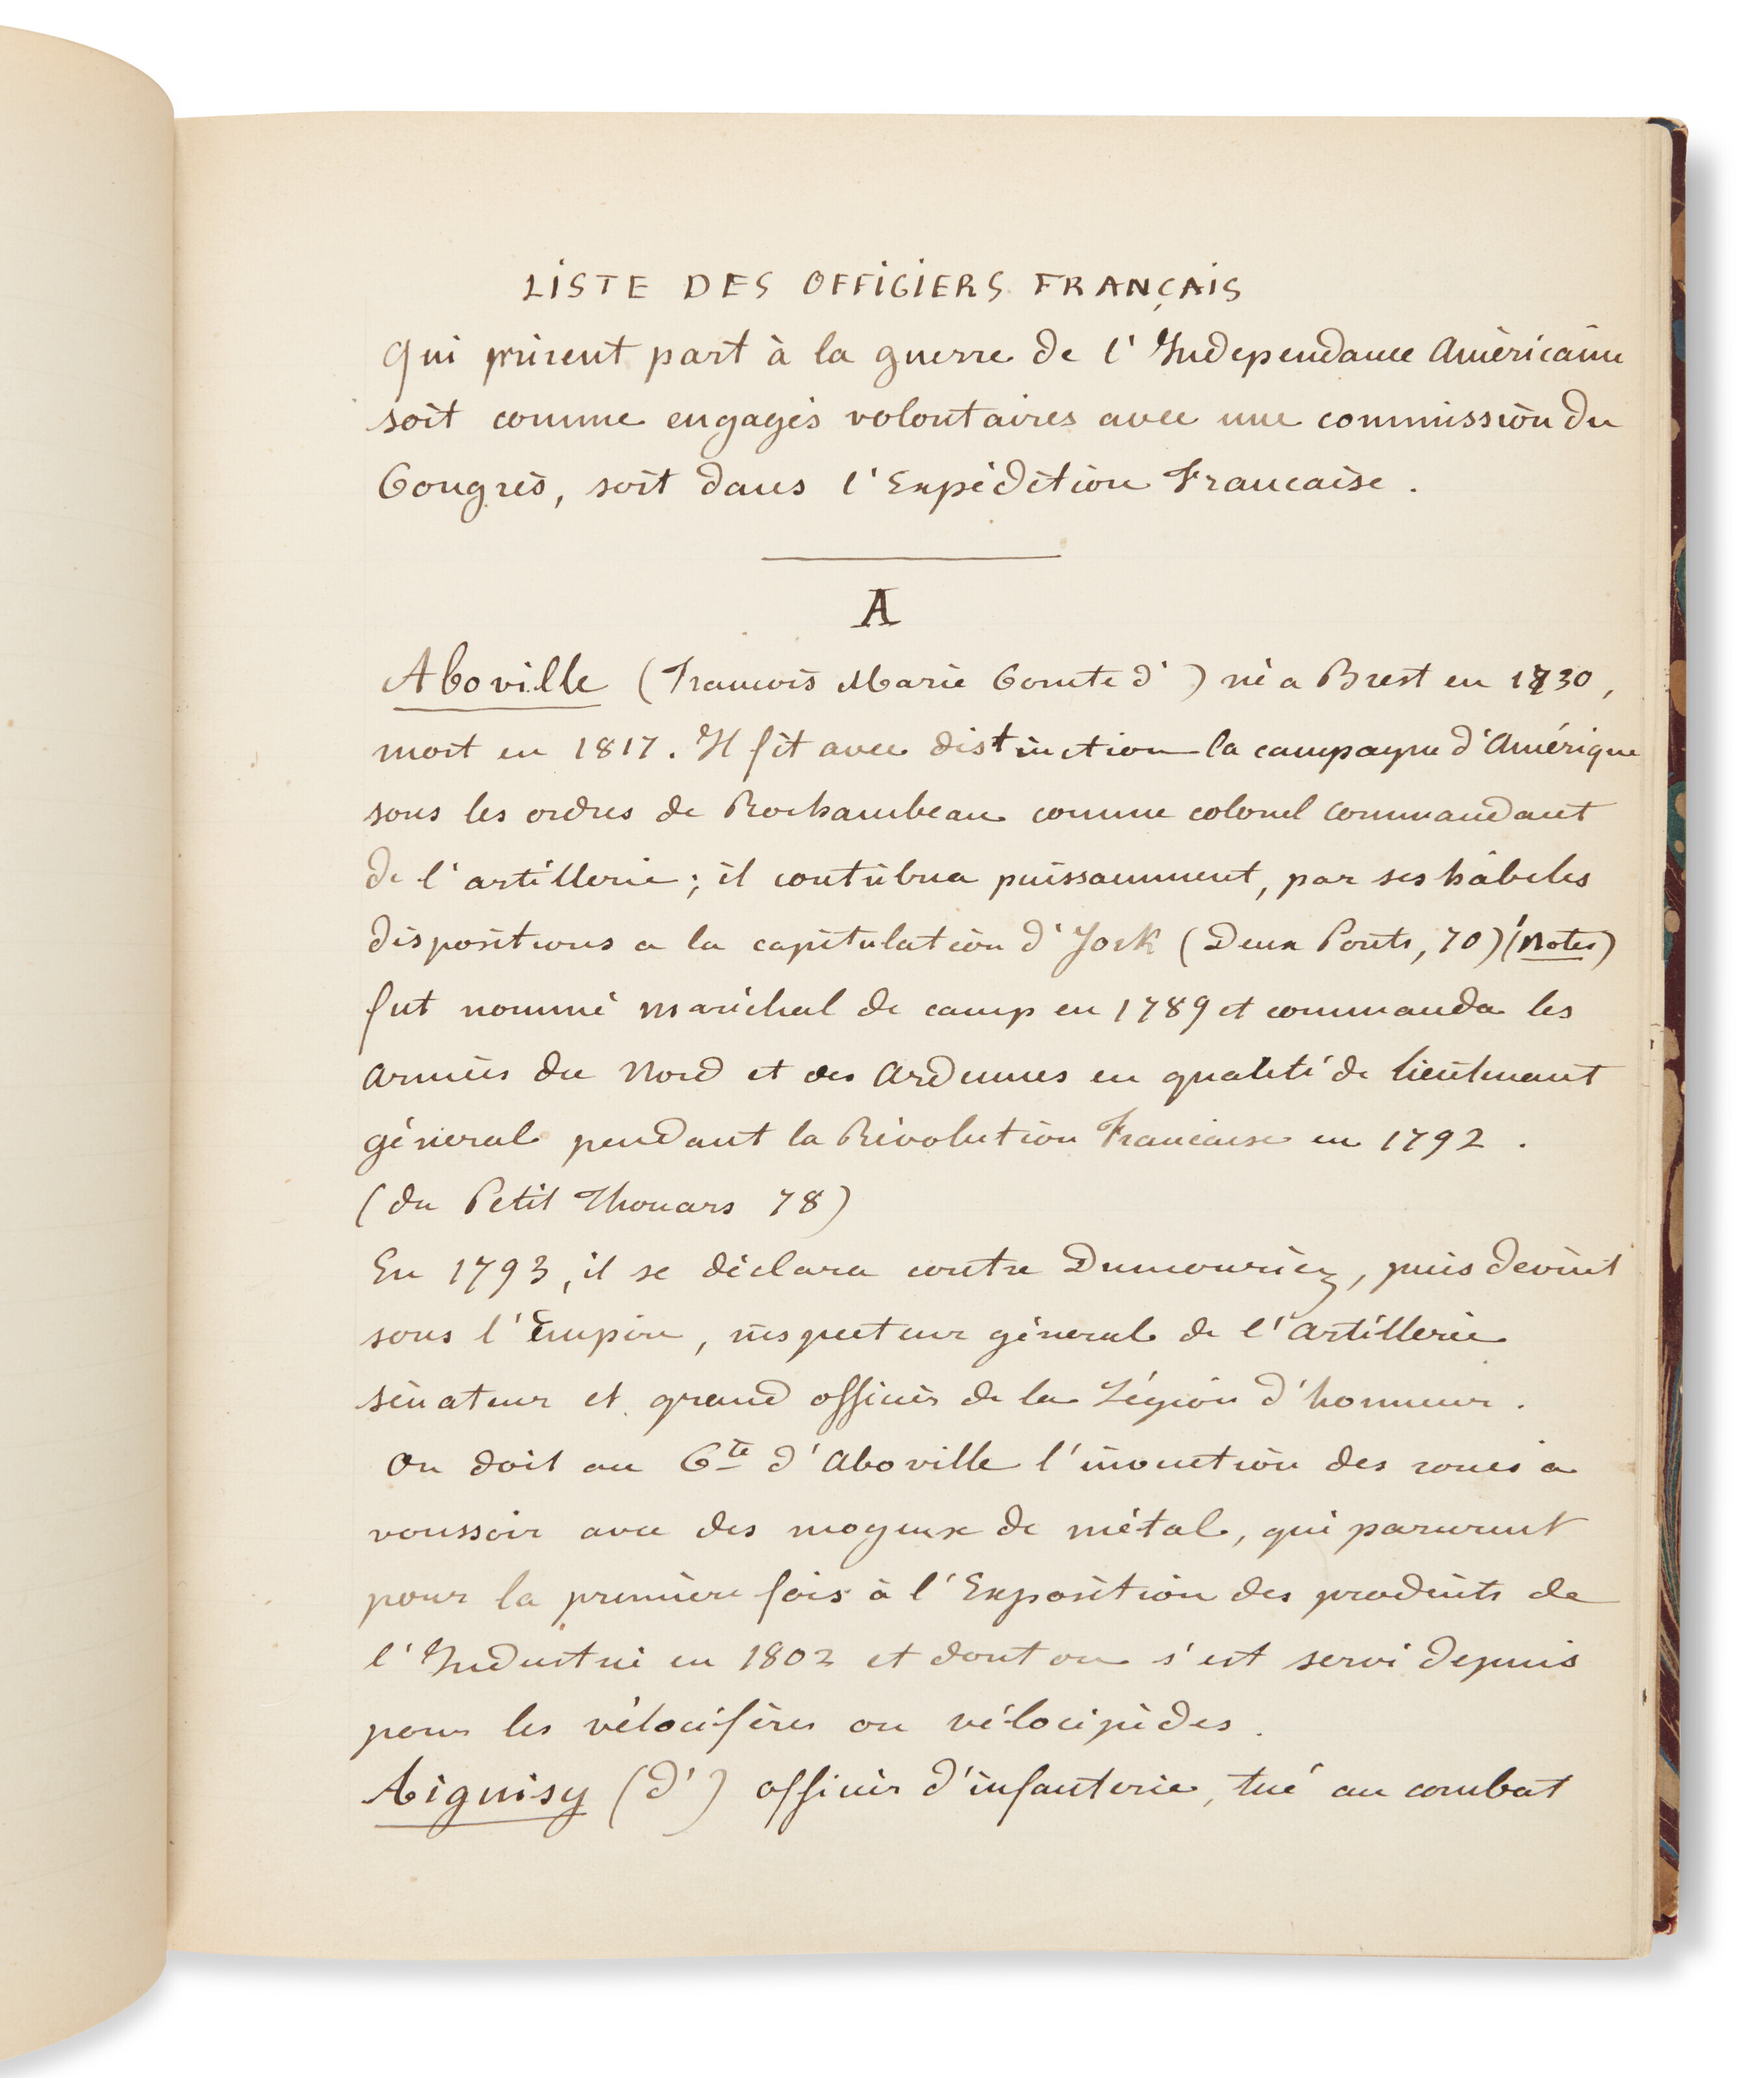 LISTE DES OFFICIERS FRANÇAIS
qui prirent part à la guerre de l'Independance Américaine
soit comme engagés volontaires avec une commission du
Congrès, soit dans l'Expédition Francaise.
A
Aboville (Francois Marie Comte d') né a Brest en 1730,
mort en 1817. Il fit avec distinction la campagne d'Amérique
sous les ordres de Rochambeau comme colonel commandant
de l'artillerie; il contribua puissamment, par ses habiles
dispositions a la capitulation d'York (Deux Ponts, 70) (Notes)
fut nommé maréchal de camp en 1789 et commanda les
armées du Nord et des Ardennes en qualité de lieutenant
géneral pendant la Révolution Francaise en 1792.
(du Petit Thouars 78)
En 1793, il se déclara contre Dumouriez, puis devint
sous l'Empire, inspecteur géneral de l'artillerie
sénateur et grand officier de la Légion d'honneur.
On doit au Cte d'Aboville l'invention des roues a
voussoir avec des moyeux de métal, qui parurent
pour la première fois à l'Exposition des produits de
l'Industrie en 1802 et dont on s'est servi depuis
pour les vélocifères ou vélocipèdes.
Aiguisy (d') officier d'infanterie, tué au combat